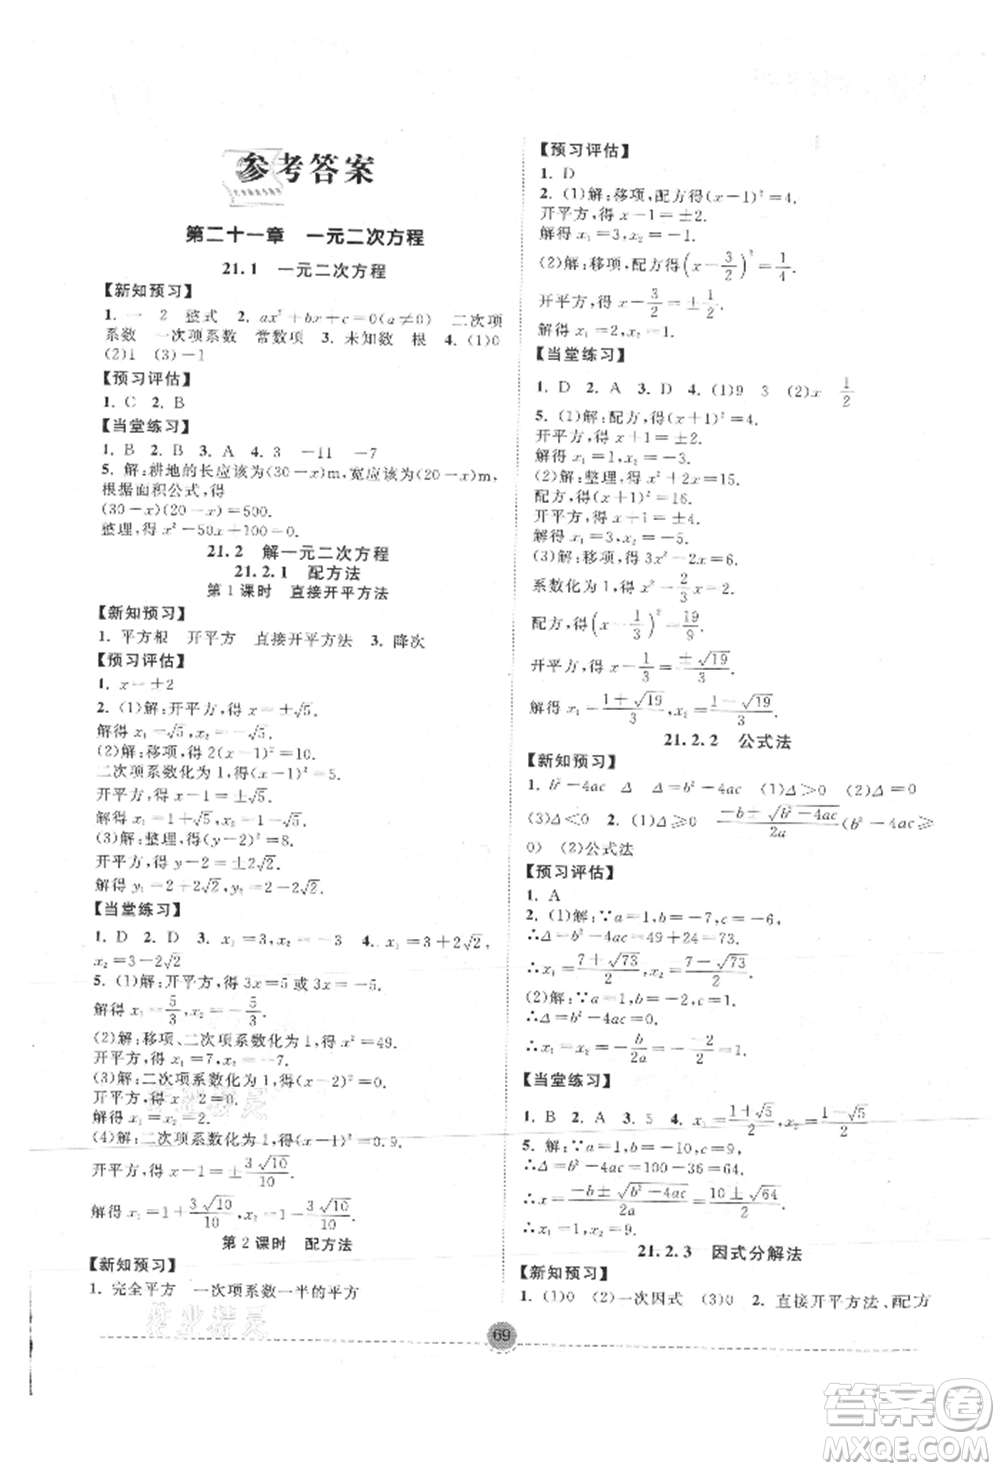 参考答案
第二十一章 一元二次方程
21.1 一元二次方程
【新知预习】
1. 一 2 整式 2. ax²+bx+c=0(a≠0) 二次项
系数 一次项系数 常数项 3. 未知数 根 4. (1)0
(2)1 (3)-1
【预习评估】
1. C 2. B
【当堂练习】
1. B 2. B 3. A 4. 3 -11 -7
5. 解:耕地的长应该为(30-x)m,宽应该为(20-x)m,
根据面积公式,得
(30-x)(20-x)=500.
整理,得 x²-50x+100=0.
21.2 解一元二次方程
21.2.1 配方法
第1课时 直接开平方法
【新知预习】
1. 平方根 开平方 直接开平方法 3. 降次
【预习评估】
1. x=±2
2. (1)解:开平方,得 x=±√5.
解得 x₁=√5,x₂=-√5.
(2)解:移项,得 2(x-1)²=10.
二次项系数化为 1,得(x-1)²=5.
开平方,得 x-1=±√5.
解得 x₁=1+√5,x₂=1-√5.
(3)解:整理,得(y-2)²=8.
开平方,得 y-2=±2√2.
解得 y₁=2+2√2,y₂=2-2√2.
【当堂练习】
1. D 2. D 3. x₁=3,x₂=-3 4. x₁=3+2√2,
x₂=3-2√2
5. (1)解:开平方,得 3x=5 或 3x=-5.
解得 x₁=5/3,x₂=-5/3.
(2)解:移项、二次项系数化为 1,得 x²=49.
开平方,得 x₁=7,x₂=-7.
(3)解:二次项系数化为 1,得(x-1)²=0.
开平方,得 x-1=0.
解得 x₁=x₂=1.
(4)解:二次项系数化为 1,得(x-1)²=0.9.
开平方,得 x-1=±3√10/10.
解得 x₁=1+3√10/10,x₂=1-3√10/10.
第2课时 配方法
【新知预习】
1. 完全平方 一次项系数一半的平方
【预习评估】
1. D
2. (1)解:移项,配方,得(x-1)²=4.
开平方,得 x-1=±2.
解得 x₁=3,x₂=-1.
(2)解:移项,配方,得(x-3/2)²=1/4.
开平方,得 x-3/2=±1/2.
解得 x₁=2,x₂=1.
【当堂练习】
1. D 2. A 3. D 4. (1)9 3 (2)x 1/2
5. (1)解:配方,得(x+1)²=4.
开平方,得 x+1=±2.
解得 x₁=1,x₂=-3.
(2)解:整理,得 x²+2x=15.
配方,得(x+1)²=16.
开平方,得 x+1=±4.
解得 x₁=3,x₂=-5.
(3)解:移项,得 3x²-2x=6.
系数化为 1,得 x²-2/3x=2.
配方,得(x-1/3)²=19/9.
开平方,得 x-1/3=±√19/3.
解得 x₁=1+√19/3,x₂=1-√19/3.
21.2.2 公式法
【新知预习】
1. b²-4ac Δ Δ=b²-4ac (1)Δ>0 (2)Δ=0
(3)Δ<0 2. (1)Δ≥0 -b±√b²-4ac/2a(b²-4ac≥
0) (2)公式法
【预习评估】
1. A
2. (1)解:∵a=1,b=-7,c=-6,
∴Δ=b²-4ac=49+24=73.
∴x₁=7+√73/2,x₂=7-√73/2.
(2)解:∵a=1,b=2,c=1,
∴Δ=b²-4ac=0.
∴x₁=x₂=-b/2a=-2/2=-1.
【当堂练习】
1. B 2. A 3. 5 4. x₁=1+√5/2,x₂=1-√5/2
5. 解:∵a=1,b=-10,c=9,
∴Δ=b²-4ac=100-36=64.
∴x=-b±√b²-4ac/2a=10±√64/2.
∴x₁=1,x₂=9.
21.2.3 因式分解法
【新知预习】
1. (1)0 (2)一次因式 (3)0 2. 直接开平方法、配方
69
作业精灵
答案卷
MXQE.COM